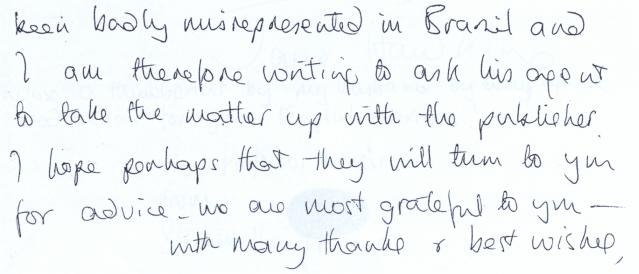 been badly misrepresented in Brazil and
I am therefore writing to ask his agent
to take the matter up with the publisher.
I hope perhaps that they will turn to you
for advice - we are most grateful to you -
with many thanks & best wishes,